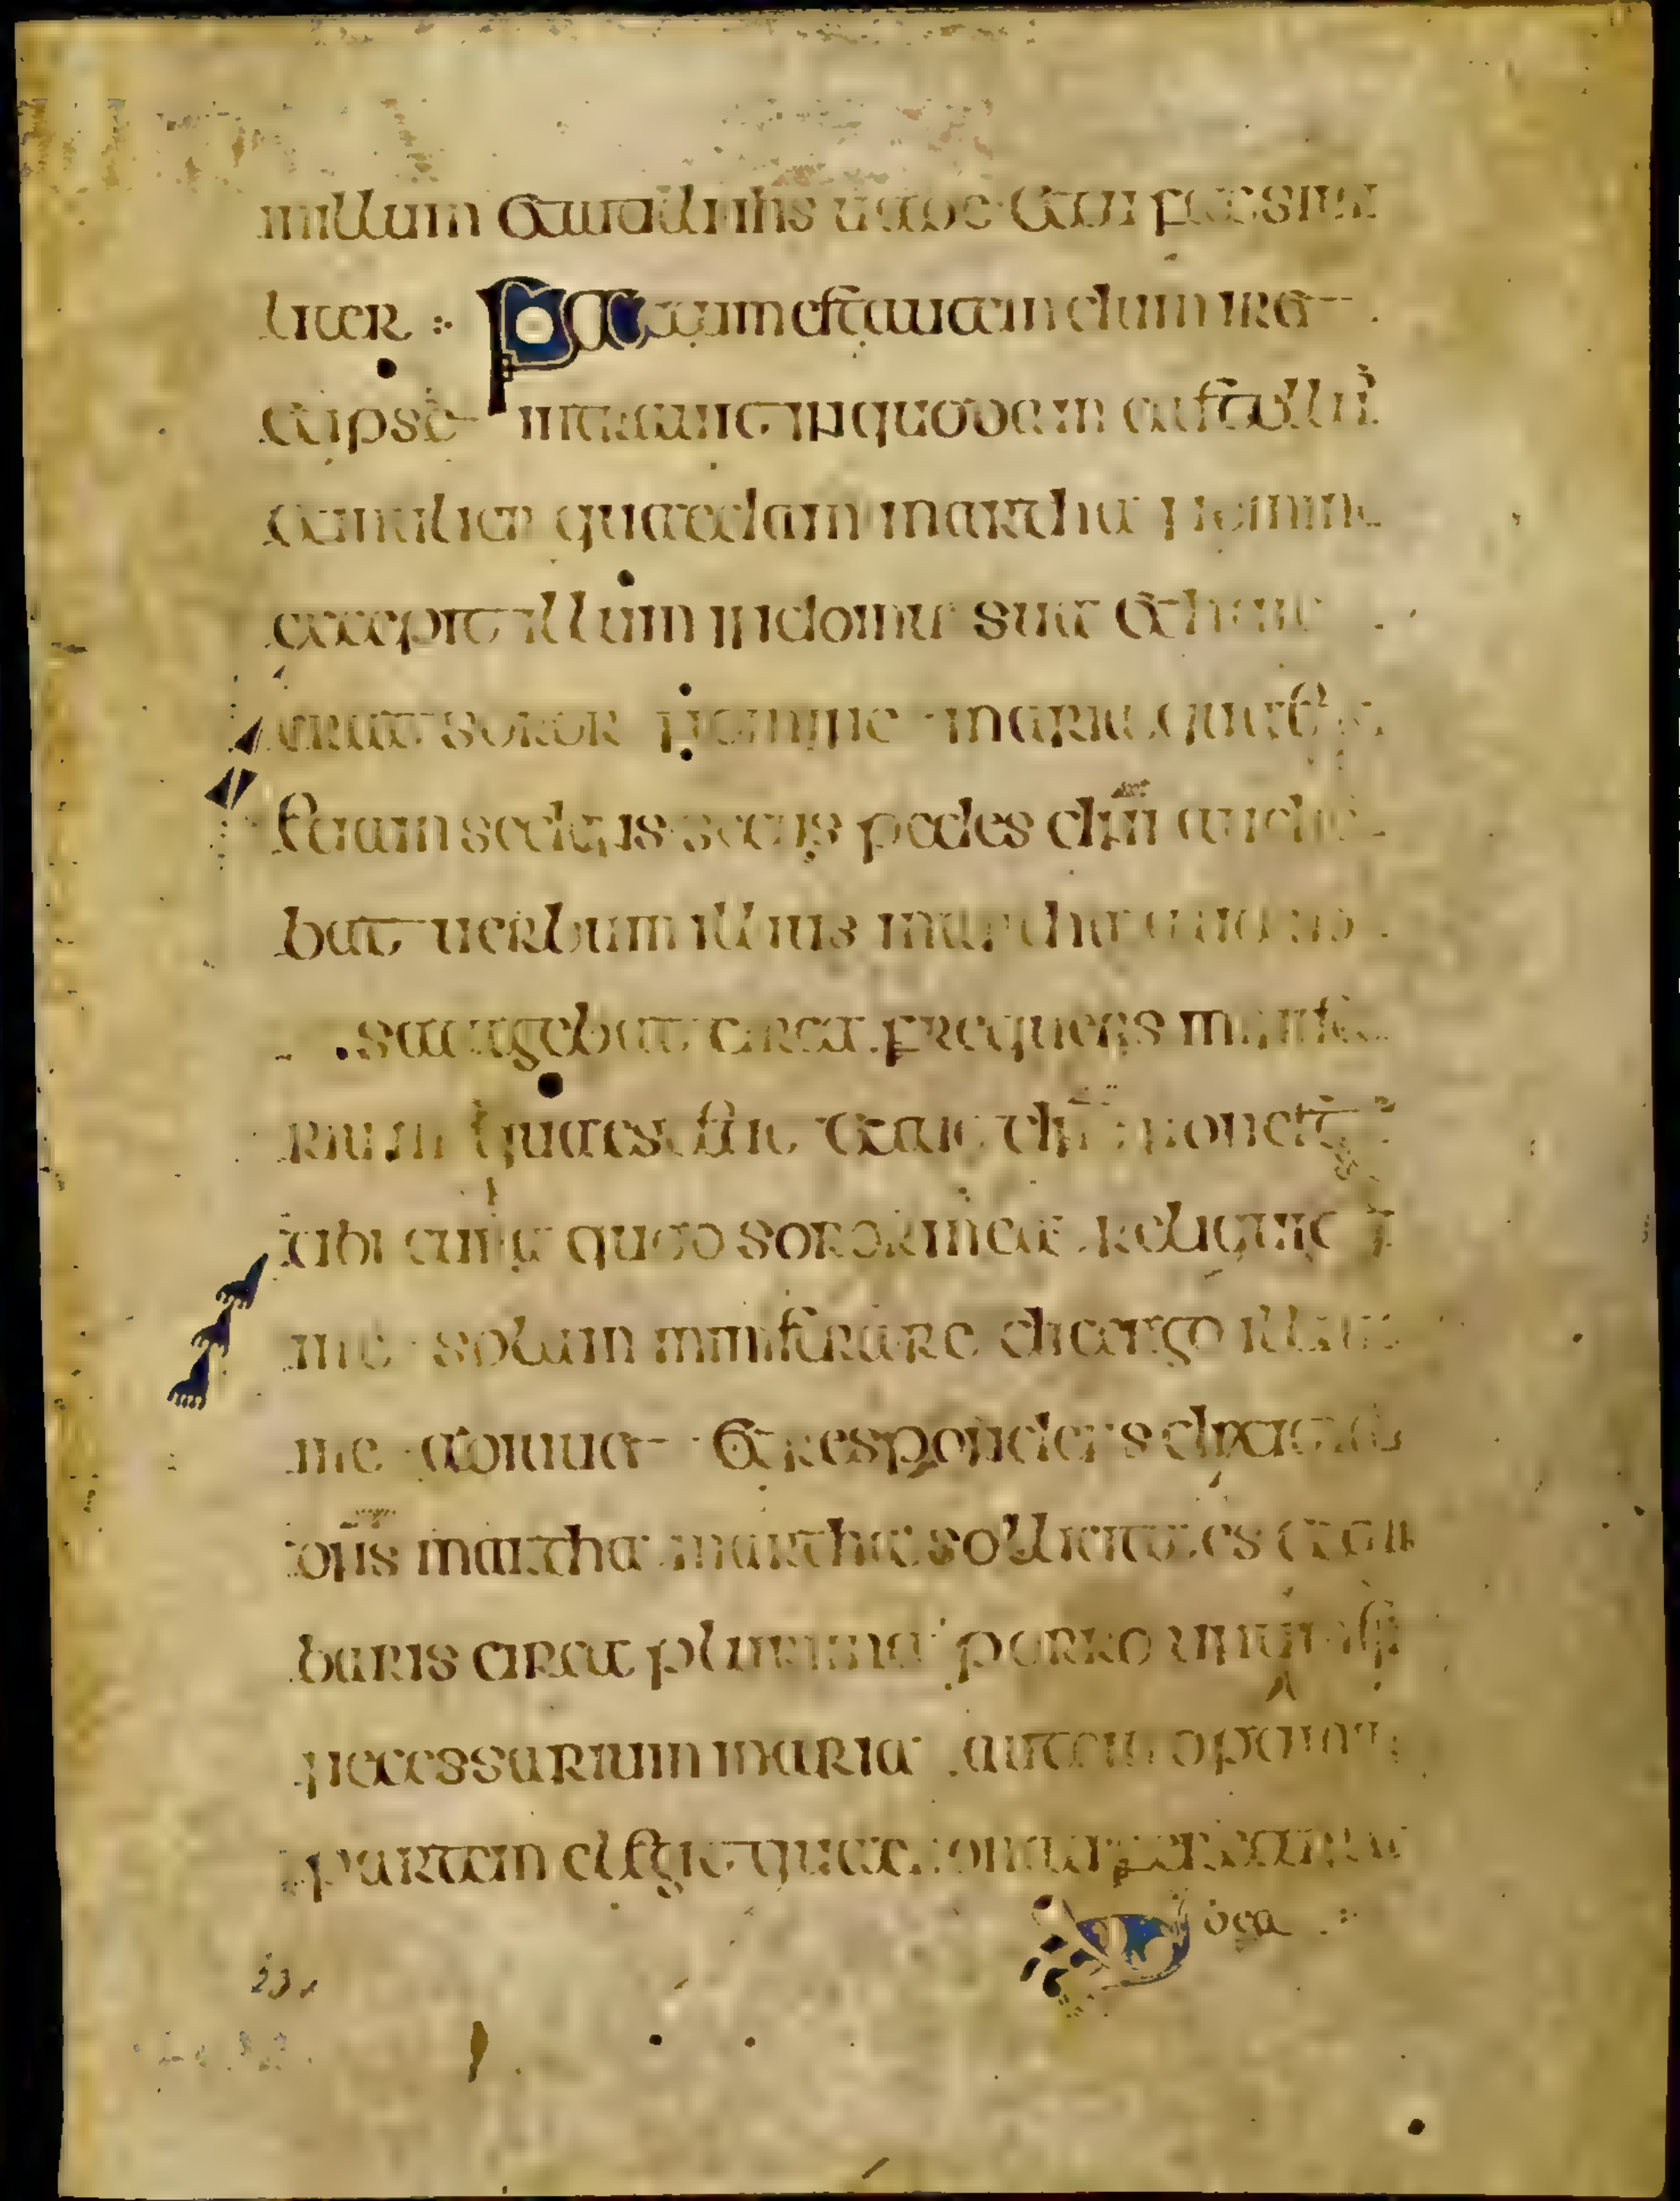 millum et ait illi ihs uade et tu fac simi
liter : Factum est autem dum ire
et ipse intrauit in quodam castellū
et mulier quaedam martha nomine
excepit illum in domū suā et huic
erat soror nomine maria quae
etiam sedens secus pedes dn̄i audie
bat uerbum illius martha autem
satagebat circa frequens ministe
rium quae stetit et ait dn̄e non est
tibi curae quod soror mea reliquit
me solam ministrare dic ergo illi ut
me adiuuet et respondens dixit illi
dn̄s martha martha sollicita es et tur
baris circa plurima porro unum est
necessarium maria autem optimā
partem elegit quae non auferetur
ab ea :
23